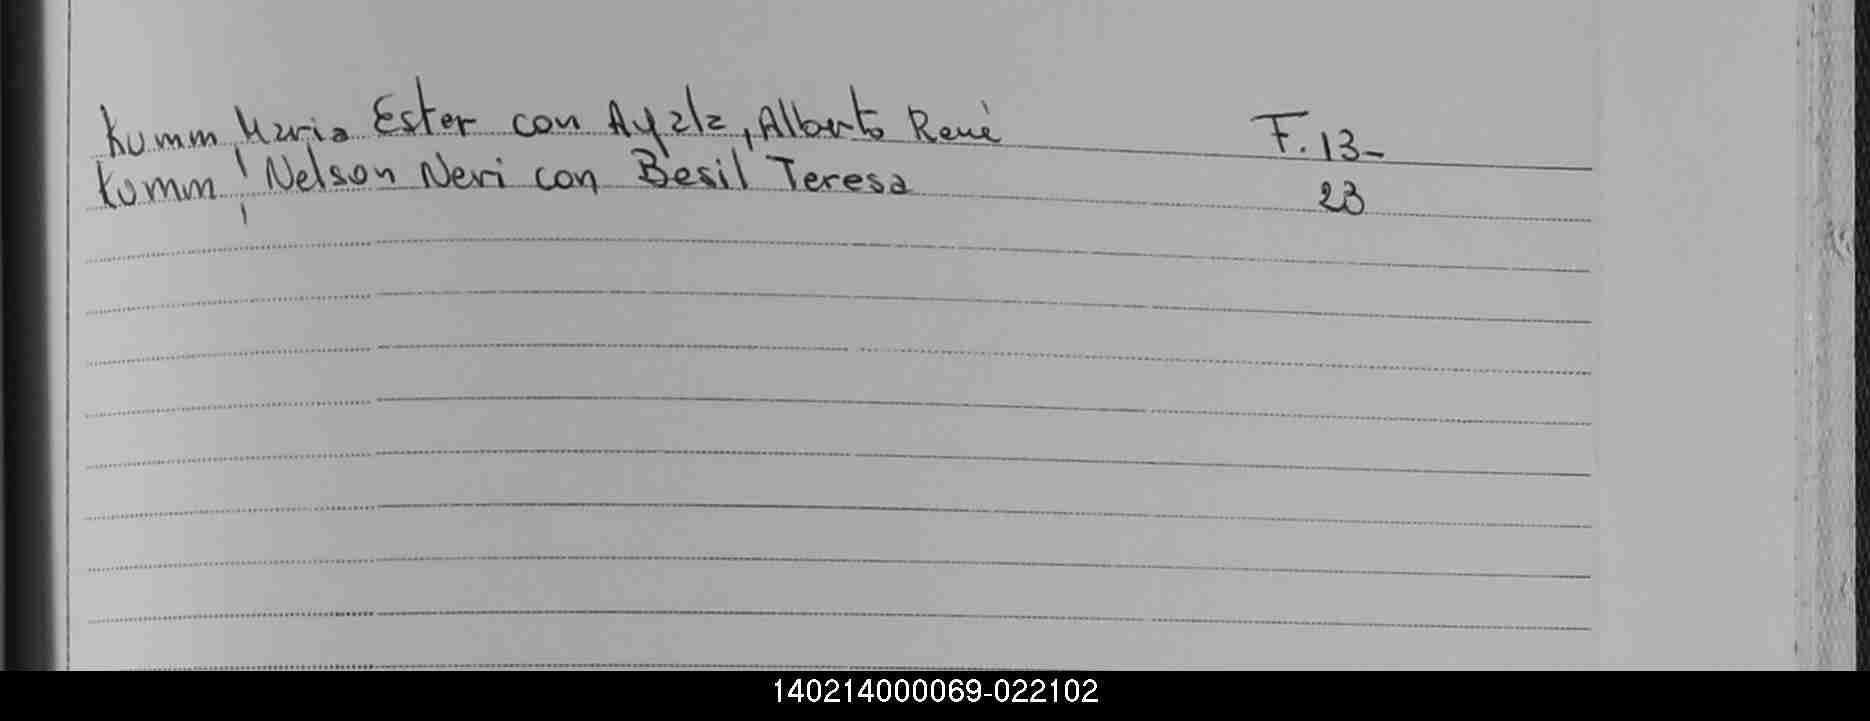 Kumm, Maria Ester con Ayala, Alberto René F. 13-
Kumm, Nelson Neri con Besil Teresa 23
140214000069-022102